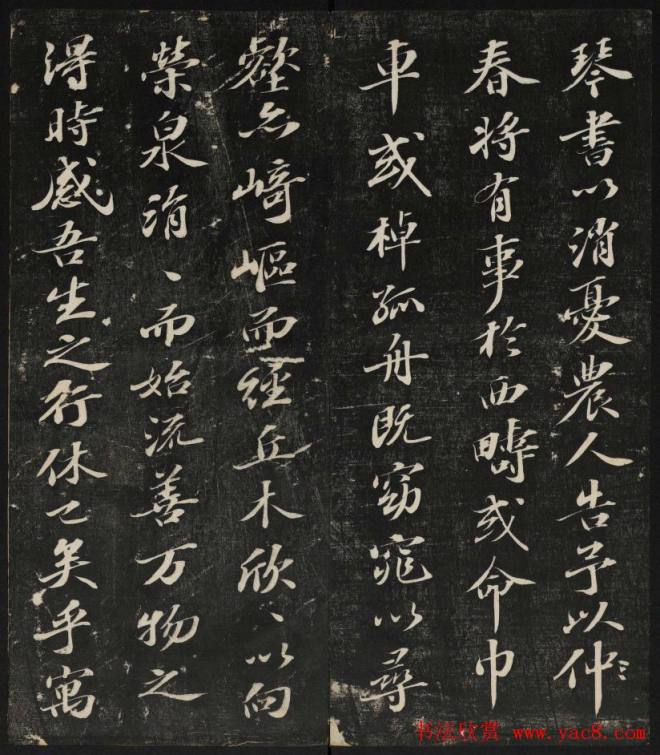 琴書以消憂農人告予以仲
春将有事於西疇或命巾
車或棹孤舟既窈窕以尋
壑亦崎嶇而經丘木欣、以向
榮泉涓、而始流善万物之
得時感吾生之行休已矣乎寓
书法欣赏 www.yac8.com